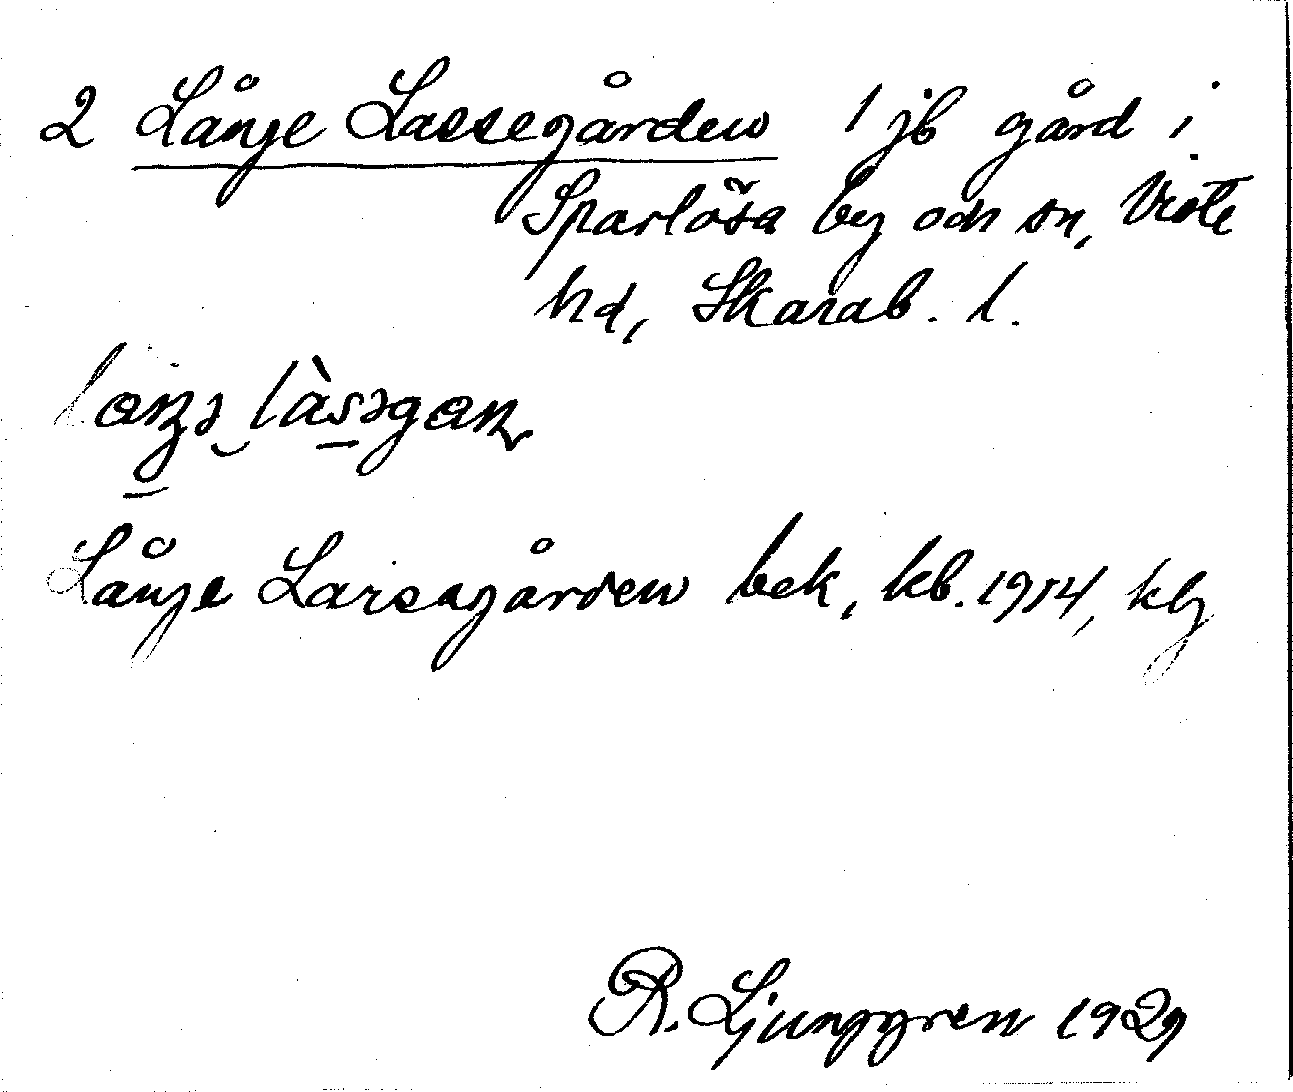 2 Långe Lassegården 1 jb gård i
Sparlösa by och sn, Viste
hd, Skarab. l.
Långe Larsagården bek, kb. 1914, kbg
R. Ljunggren 1929